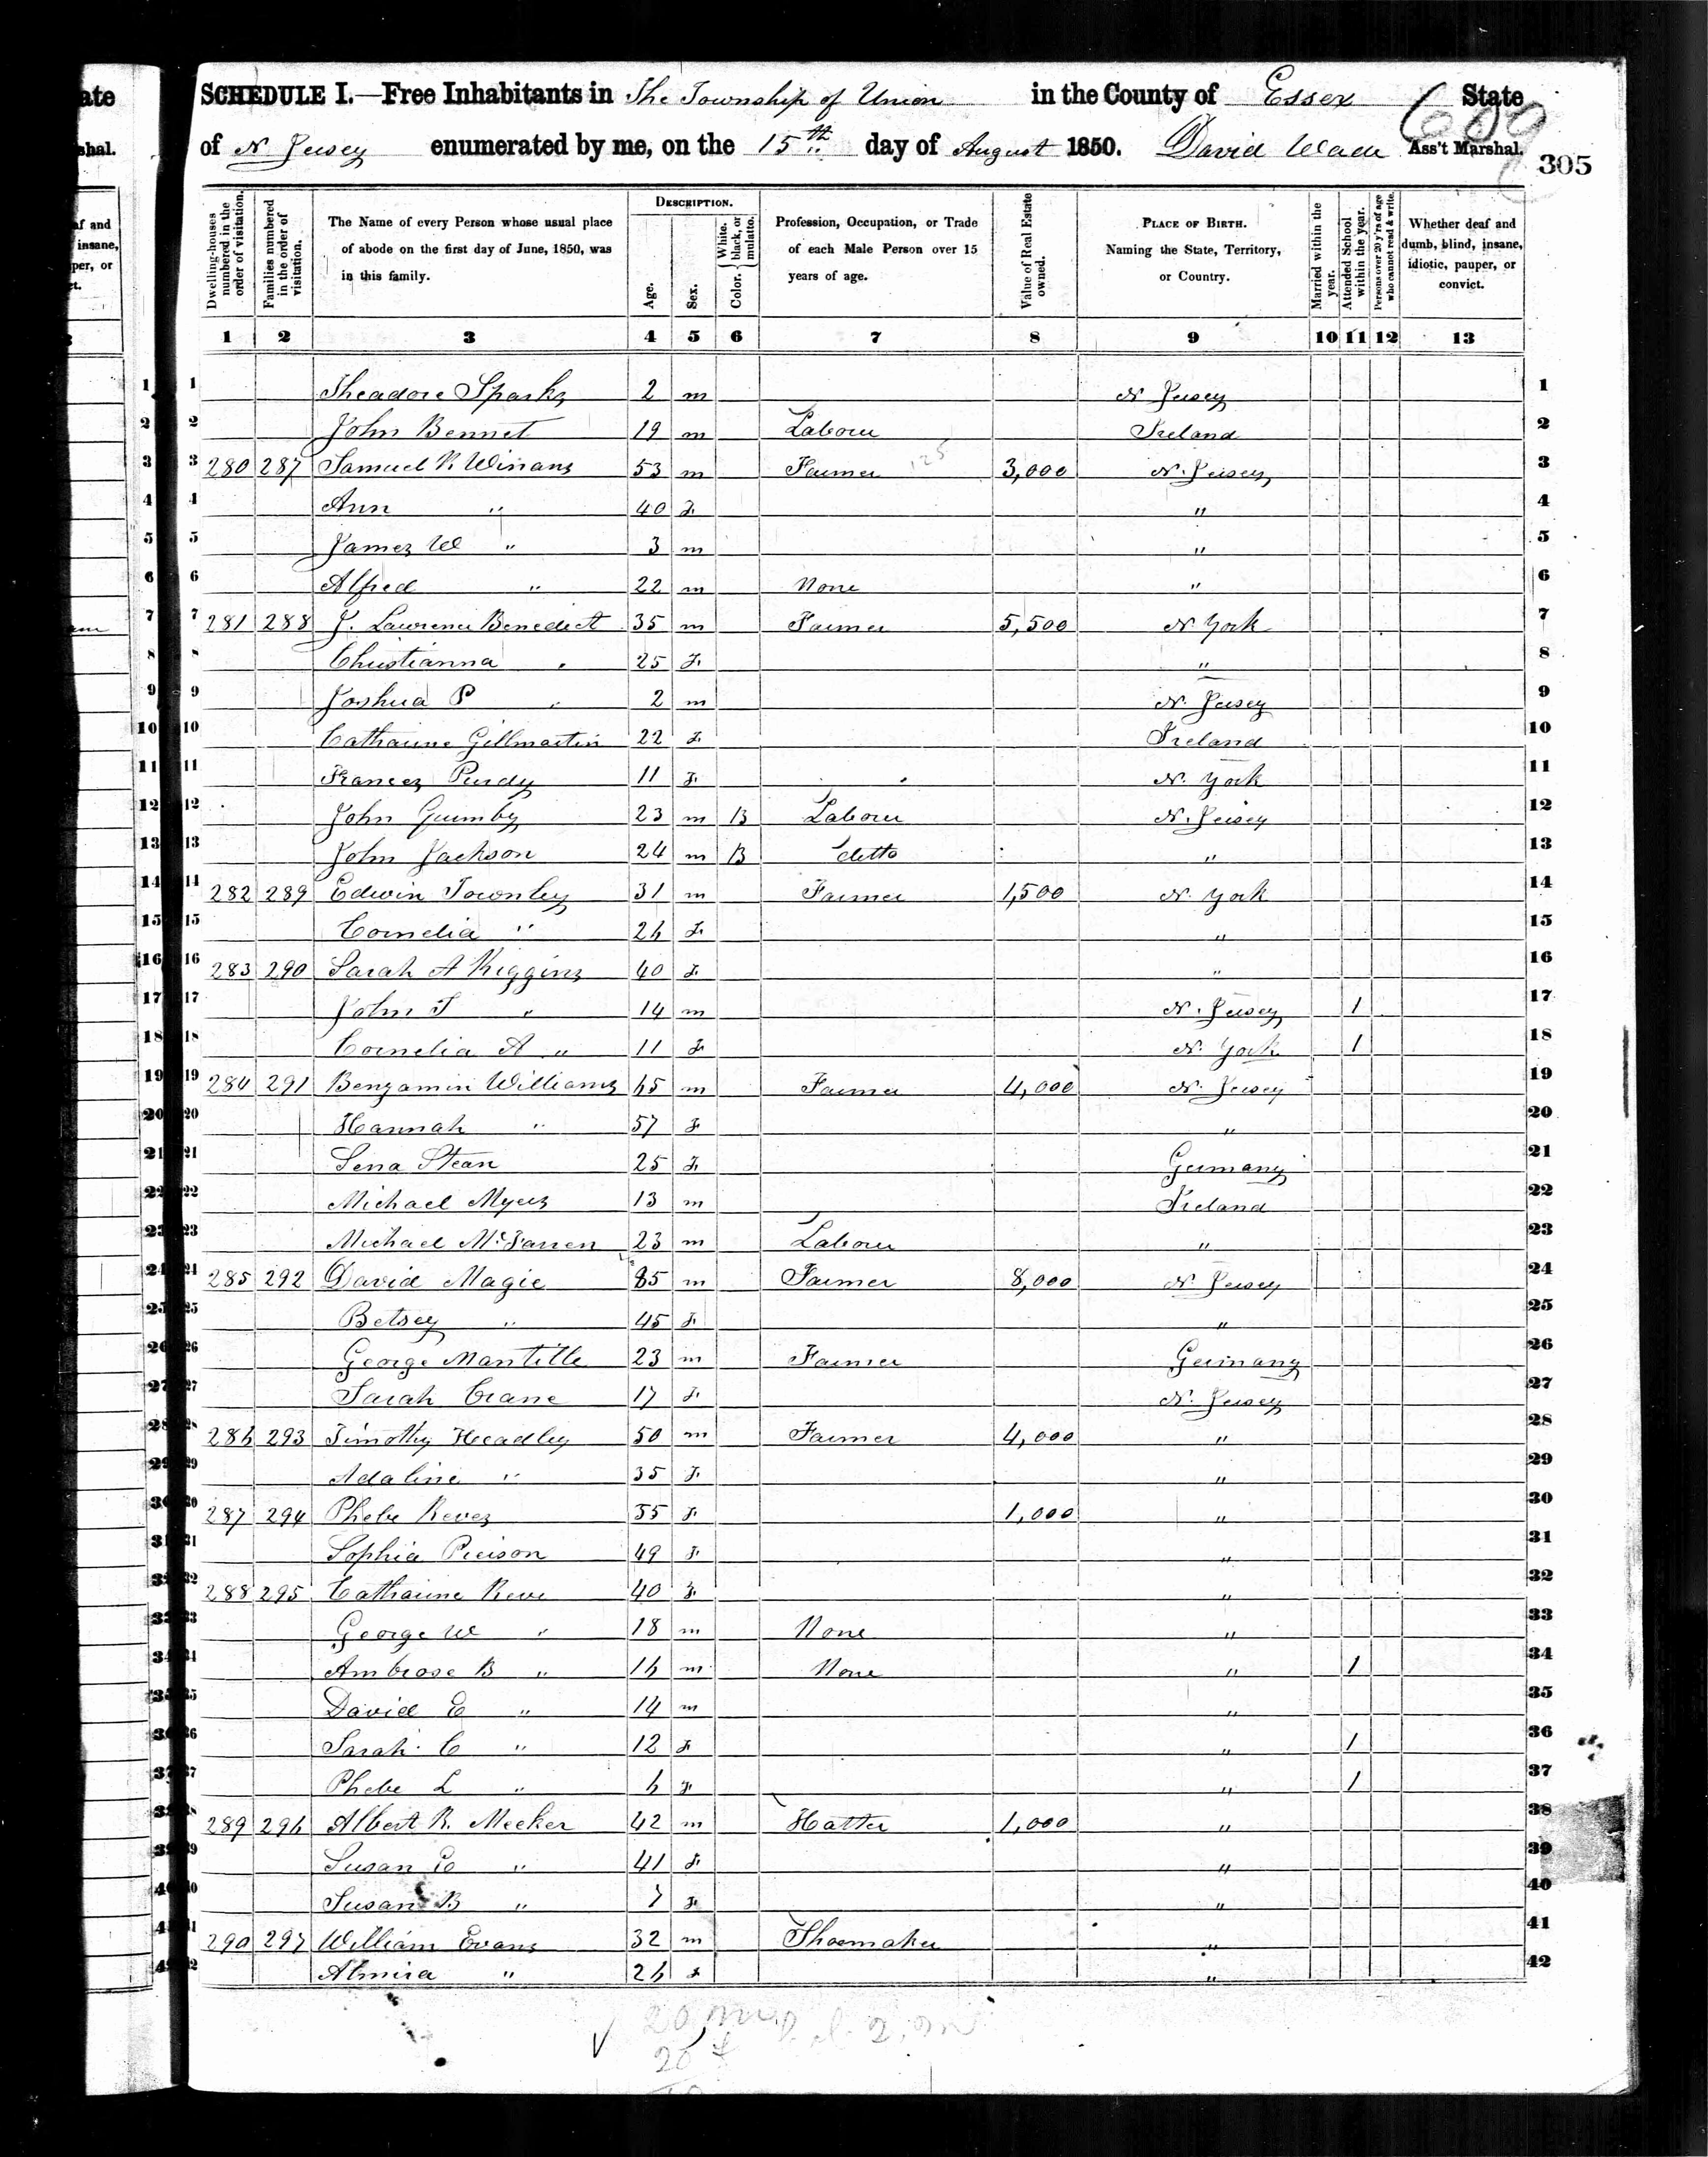 SCHEDULE I.—Free Inhabitants in The Township of Union in the County of Essex State
of N Jersey enumerated by me, on the 15th day of August 1850. David Wade Ass't Marshal.
305
Dwelling-houses numbered in the order of visitation.
Families numbered in the order of visitation.
The Name of every Person whose usual place of abode on the first day of June, 1850, was in this family.
DESCRIPTION.
Age.
Sex.
Color. White, black, or mulatto.
Profession, Occupation, or Trade of each Male Person over 15 years of age.
Value of Real Estate owned.
PLACE OF BIRTH. Naming the State, Territory, or Country.
Married within the year.
Attended School within the year.
Persons over 20 y'rs of age who cannot read & write.
Whether deaf and dumb, blind, insane, idiotic, pauper, or convict.
1 2 3 4 5 6 7 8 9 10 11 12 13
1 Theadore Sparks 2 m N Jersey 1
2 John Bennet 19 m Labour Ireland 2
3 280 287 Samuel R Winans 53 m Farmer 125 3,000 N. Jersey 3
4 Ann " 40 F " 4
5 James W " 3 m " 5
6 Alfred " 22 m None " 6
7 281 288 J. Lawrence Benedict 35 m Farmer 5,500 N York 7
8 Christianna " 25 F " 8
9 Joshua P " 2 m N. Jersey 9
10 Catharine Gillmartin 22 F Ireland 10
11 Frances Purdy 11 F N. York 11
12 John Quimby 23 m B Labour N. Jersey 12
13 John Jackson 24 m B ditto " 13
14 282 289 Edwin Townley 31 m Farmer 1,500 N. York 14
15 Cornelia " 26 F " 15
16 283 290 Sarah A Higgins 40 F " 16
17 John T " 14 m N. Jersey 1 17
18 Cornelia A " 11 F N. York 1 18
19 284 291 Benjamin Williams 65 m Farmer 4,000 N. Jersey 19
20 Hannah " 57 F " 20
21 Lena Stean 25 F Germany 21
22 Michael Myers 13 m Ireland 22
23 Michael Mc 23 m Labour " 23
24 285 292 David Magie 85 m Farmer 8,000 N. Jersey 24
25 Betsey " 45 F " 25
26 George Mantille 23 m Farmer Germany 26
27 Sarah Crane 17 F N. Jersey 27
28 286 293 Timothy Headley 50 m Farmer 4,000 " 28
29 Adaline " 35 F " 29
30 287 294 Phebe Reves 55 F 1,000 " 30
31 Sophia Pierson 49 F " 31
32 288 295 Catharine Reve 40 F " 32
33 George W " 18 m None " 33
34 Ambrose B " 16 m None " 1 34
35 David E " 14 m " 35
36 Sarah C " 12 F " 1 36
37 Phebe L " 6 F " 1 37
38 289 296 Albert R. Meeker 42 m Hatter 1,000 " 38
39 Susan E " 41 F " 39
40 Susan B " 7 F " 40
41 290 297 William Evans 32 m Shoemaker " 41
42 Almira " 26 F " 42
20 m
20 f